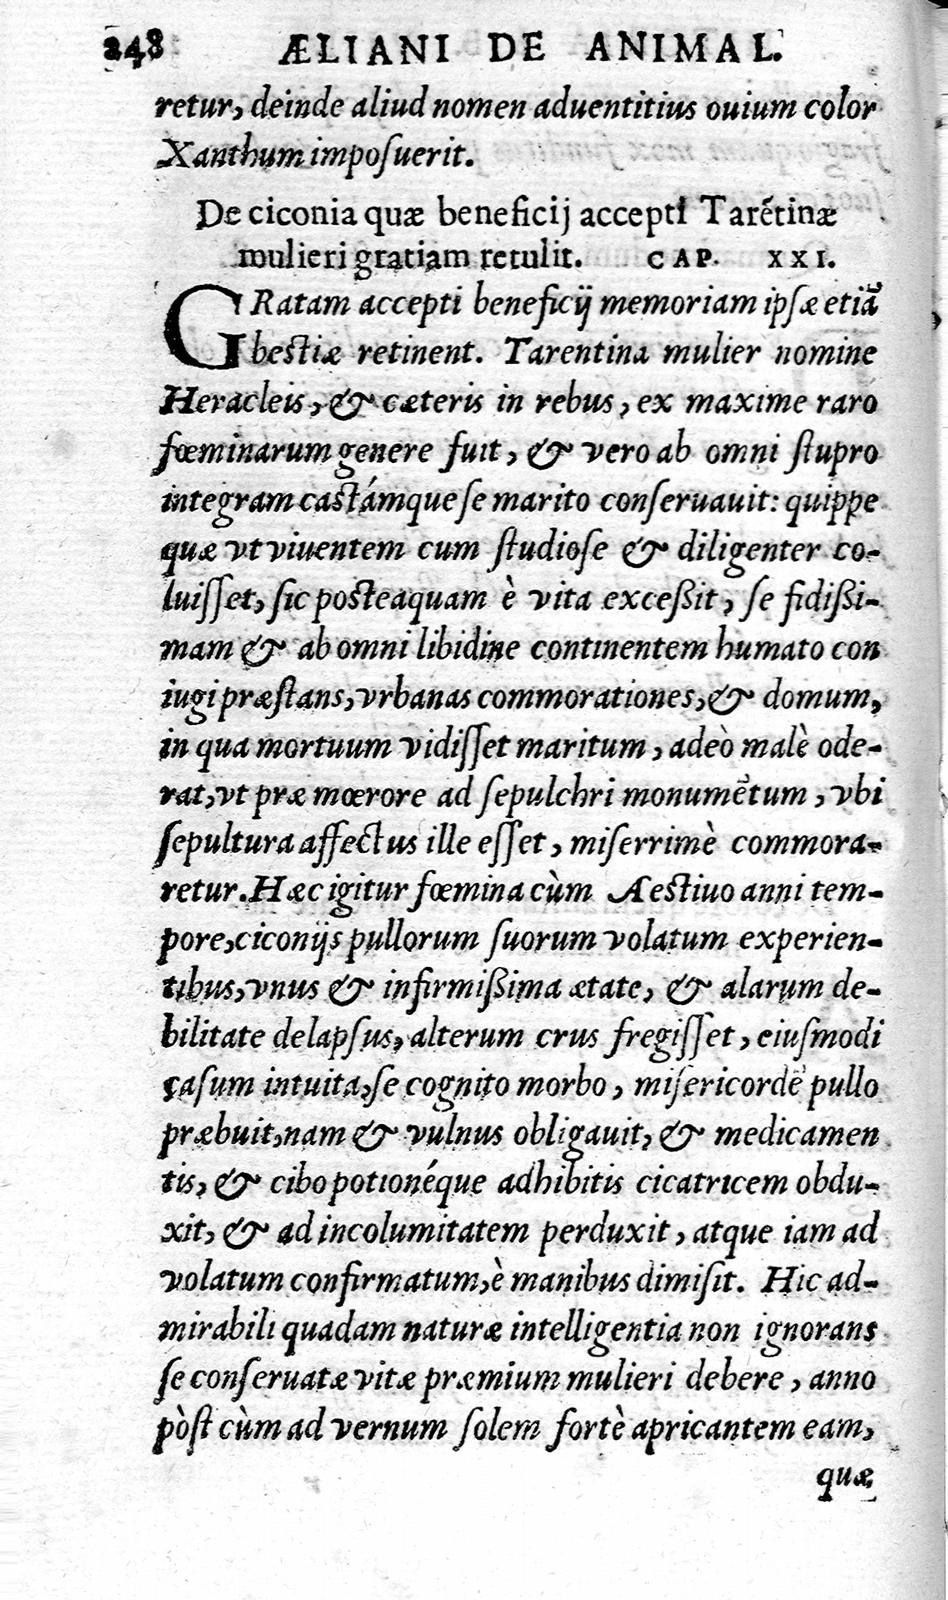 248 ÆLIANI DE ANIMAL.
retur, deinde aliud nomen aduentitius ouium color
Xanthum imposuerit.
De ciconia quæ beneficij accepti Tarẽtinæ
mulieri gratiam retulit. CAP. XXI.
GRatam accepti beneficij memoriam ipsæ etiã
bestiæ retinent. Tarentina mulier nomine
Heracleis, & cæteris in rebus, ex maxime raro
fœminarum genere fuit, & vero ab omni stupro
integram castámque se marito conseruauit: quippe
quæ vt viuentem cum studiose & diligenter co-
luisset, sic posteaquam è vita excessit, se fidissi-
mam & ab omni libidine continentem humato con
iugi præstans, vrbanas commorationes, & domum,
in qua mortuum vidisset maritum, adeò malè ode-
rat, vt præ mœrore ad sepulchri monumẽtum, vbi
sepultura affectus ille esset, miserrimè commora-
retur. Hæc igitur fœmina cùm Aestiuo anni tem-
pore, ciconijs pullorum suorum volatum experien-
tibus, vnus & infirmissima ætate, & alarum de-
bilitate delapsus, alterum crus fregisset, eiusmodi
casum intuita, se cognito morbo, misericordẽ pullo
præbuit, nam & vulnus obligauit, & medicamen
tis, & cibo potionéque adhibitis cicatricem obdu-
xit, & ad incolumitatem perduxit, atque iam ad
volatum confirmatum, è manibus dimisit. Hic ad-
mirabili quadam naturæ intelligentia non ignorans
se conseruatæ vitæ præmium mulieri debere, anno
pòst cùm ad vernum solem fortè apricantem eam,
quæ